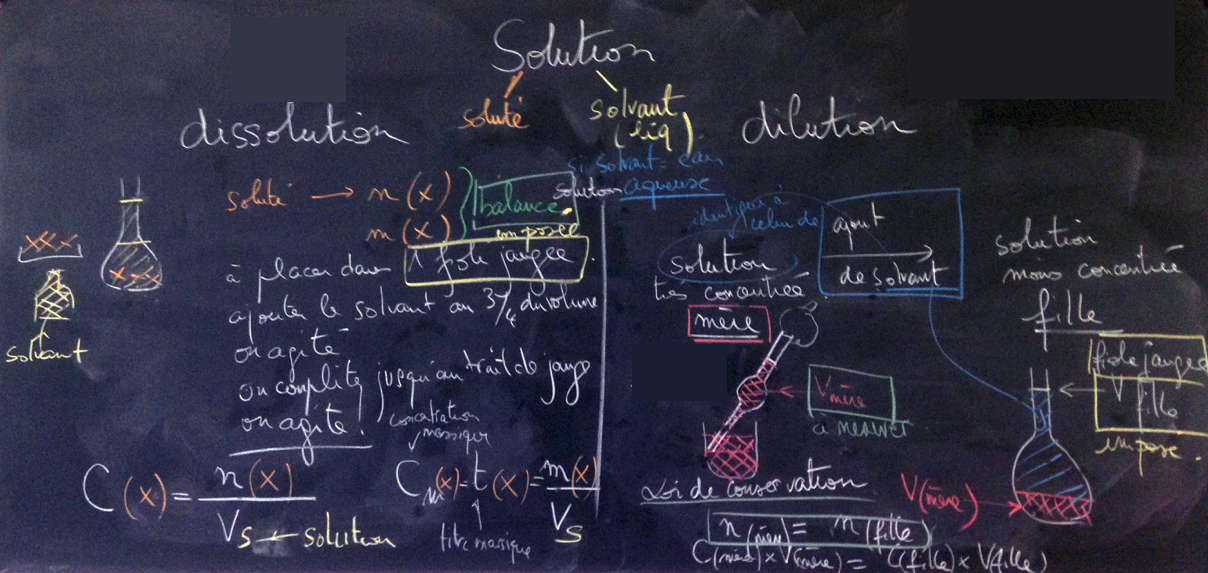 Solution
soluté
solvant
(liq).
dissolution
soluté → n(x)
m(x)
balance
imposée
à placer dans 1 fiole jaugée.
ajouter le solvant au 3/4 du volume
on agite
on complète jusqu'au trait de jauge
on agite!
solvant
C(x) = n(x) / Vs ← solution
concentration
massique
Cm(x) = t(x) = m(x) / Vs
titre massique
dilution
si solvant = eau
solution aqueuse
identique à
celui de
ajout
de solvant
solution
très concentrée
mère
Vmère
à mesurer
solution
moins concentrée
fille
fiole jaugée
V fille
impose.
V(mère)
Loi de conservation
n(mère) = n(fille)
C(mère) x V(mère) = C(fille) x V(fille)